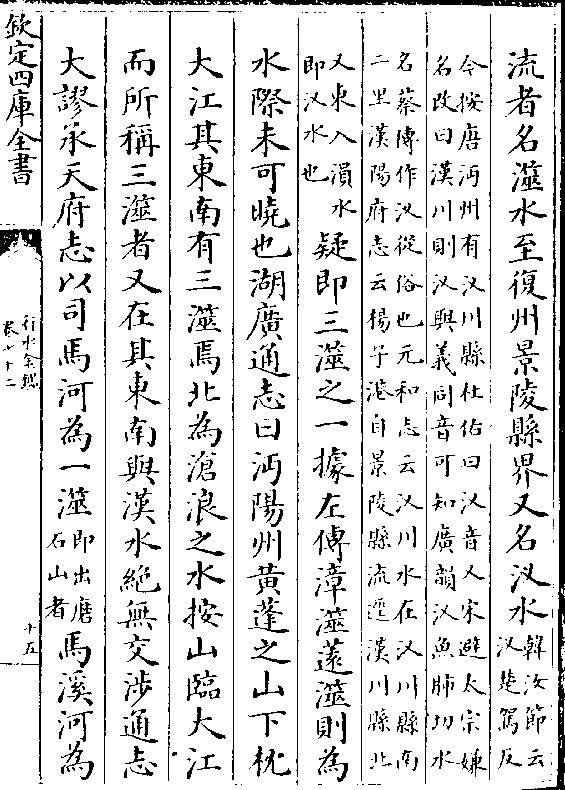 流者名澨水至復州景陵縣界又名汊水韓汝節云汊楚駕反
今按唐沔州有汊川縣杜佑曰汊音又宋避太宗嫌
名改曰漢川則汊與義同音可知廣韻汊魚肺切水
名蔡傳作汊從俗也元和志云汊川水在汊川縣南
二里漢陽府志云楊子港自景陵縣流逕漢川縣北
又東入溳水即汊水也疑即三澨之一據左傳漳澨薳澨則為
水際未可曉也湖廣通志曰沔陽州黃蓬之山下枕
大江其東南有三澨焉北為滄浪之水按山臨大江
而所稱三澨者又在其東南與漢水絶無交涉通志
大謬承天府志以司馬河為一澨即出磨石山者馬溪河為
欽定四庫全書
行水金鑑
卷七十二
十五